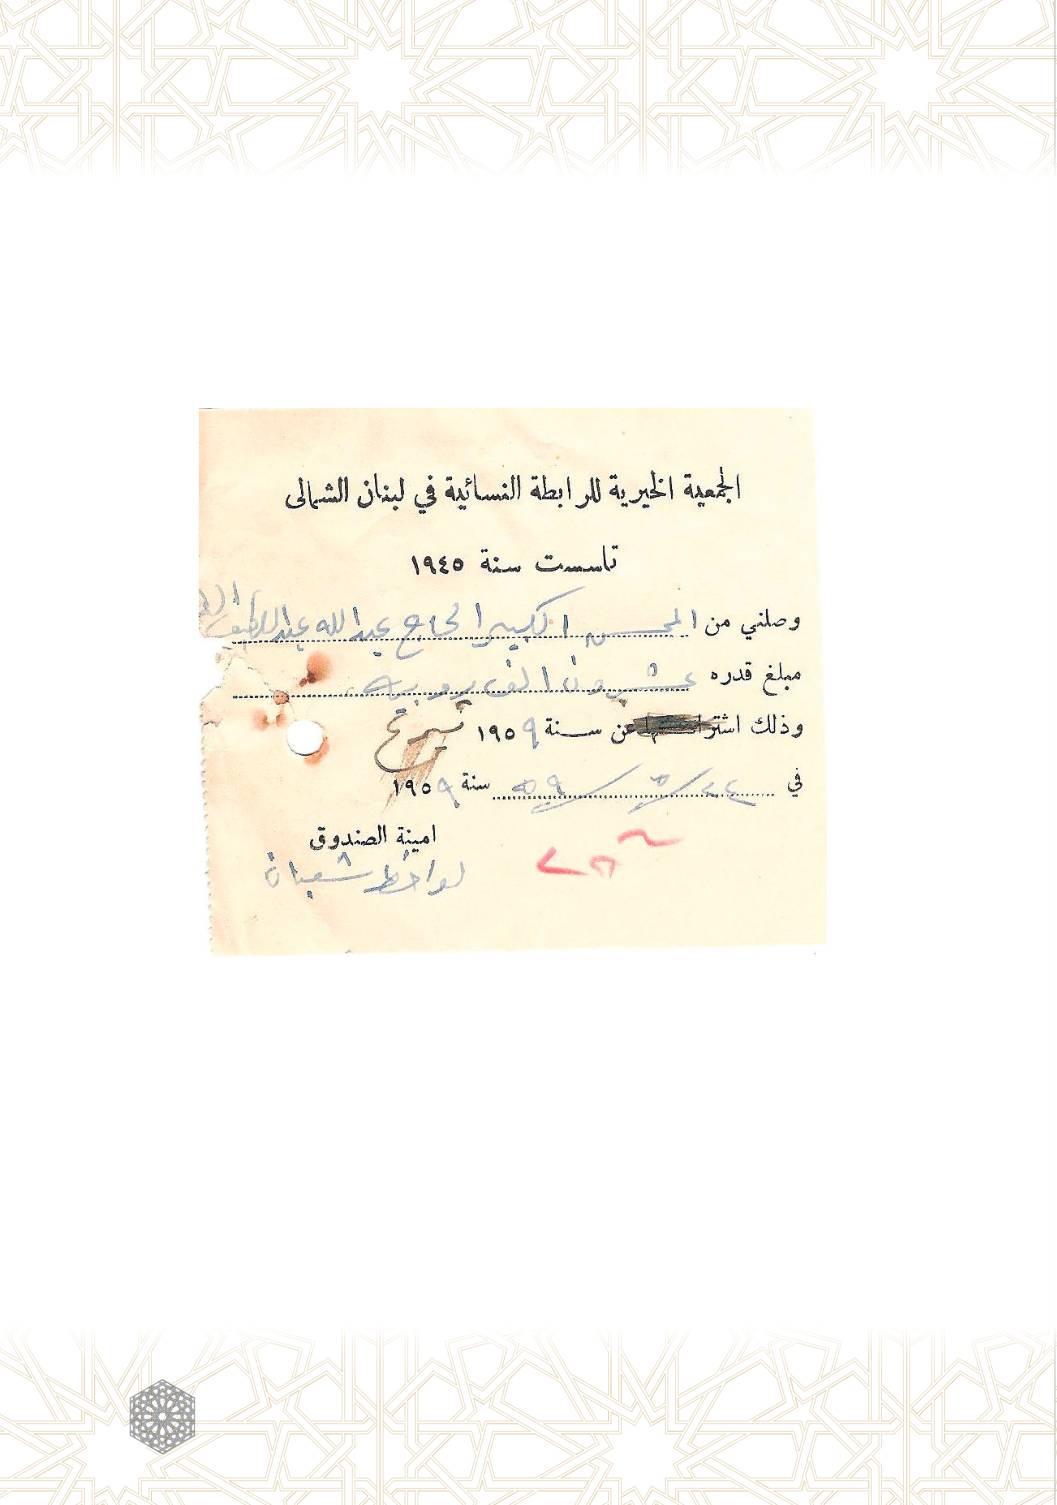 الجمعية الخيرية للرابطة النسائية في لبنان الشمالي
تاسست سنة ١٩٤٥
وصلني من المحسن الكبير الحاج عبدالله عبداللطيف
مبلغ قدره عشرون الف روبيه
وذلك عن سنة ١٩٥٩ تبرع
في ٢٤/٥/٥٩ سنة ١٩٥٩
امينة الصندوق
لواحظ شعبان